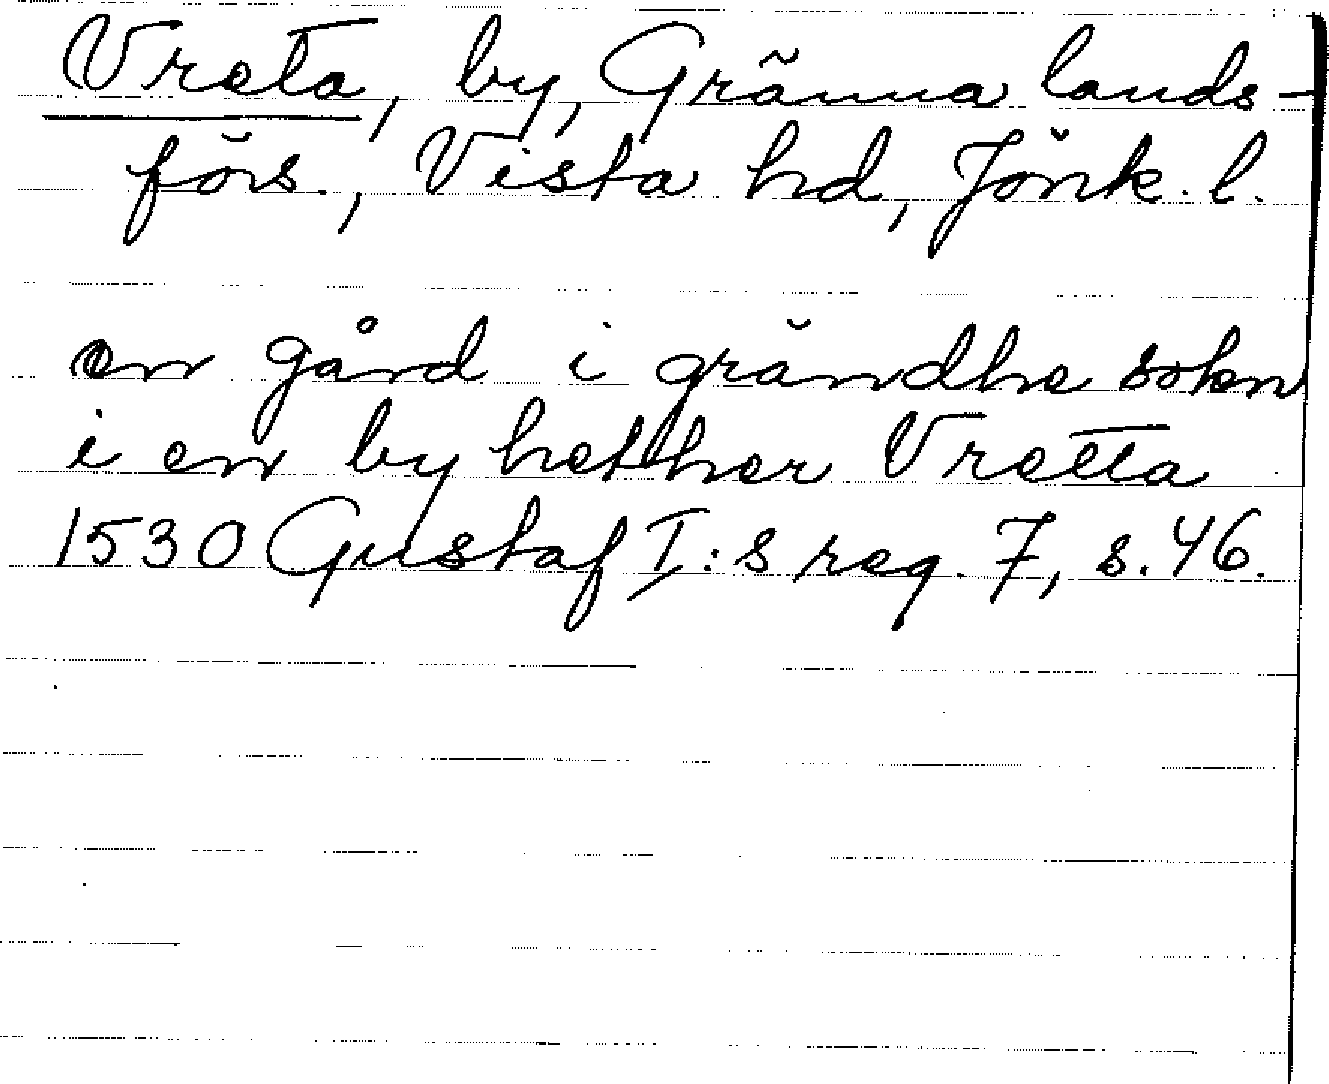 Vreta, by, Gränna lands-
förs., Vista hd, Jönk. l.
en gård i grändhe sokn
i en by hethher Vretta
1530 Gustaf I:s reg. 7, s. 46.